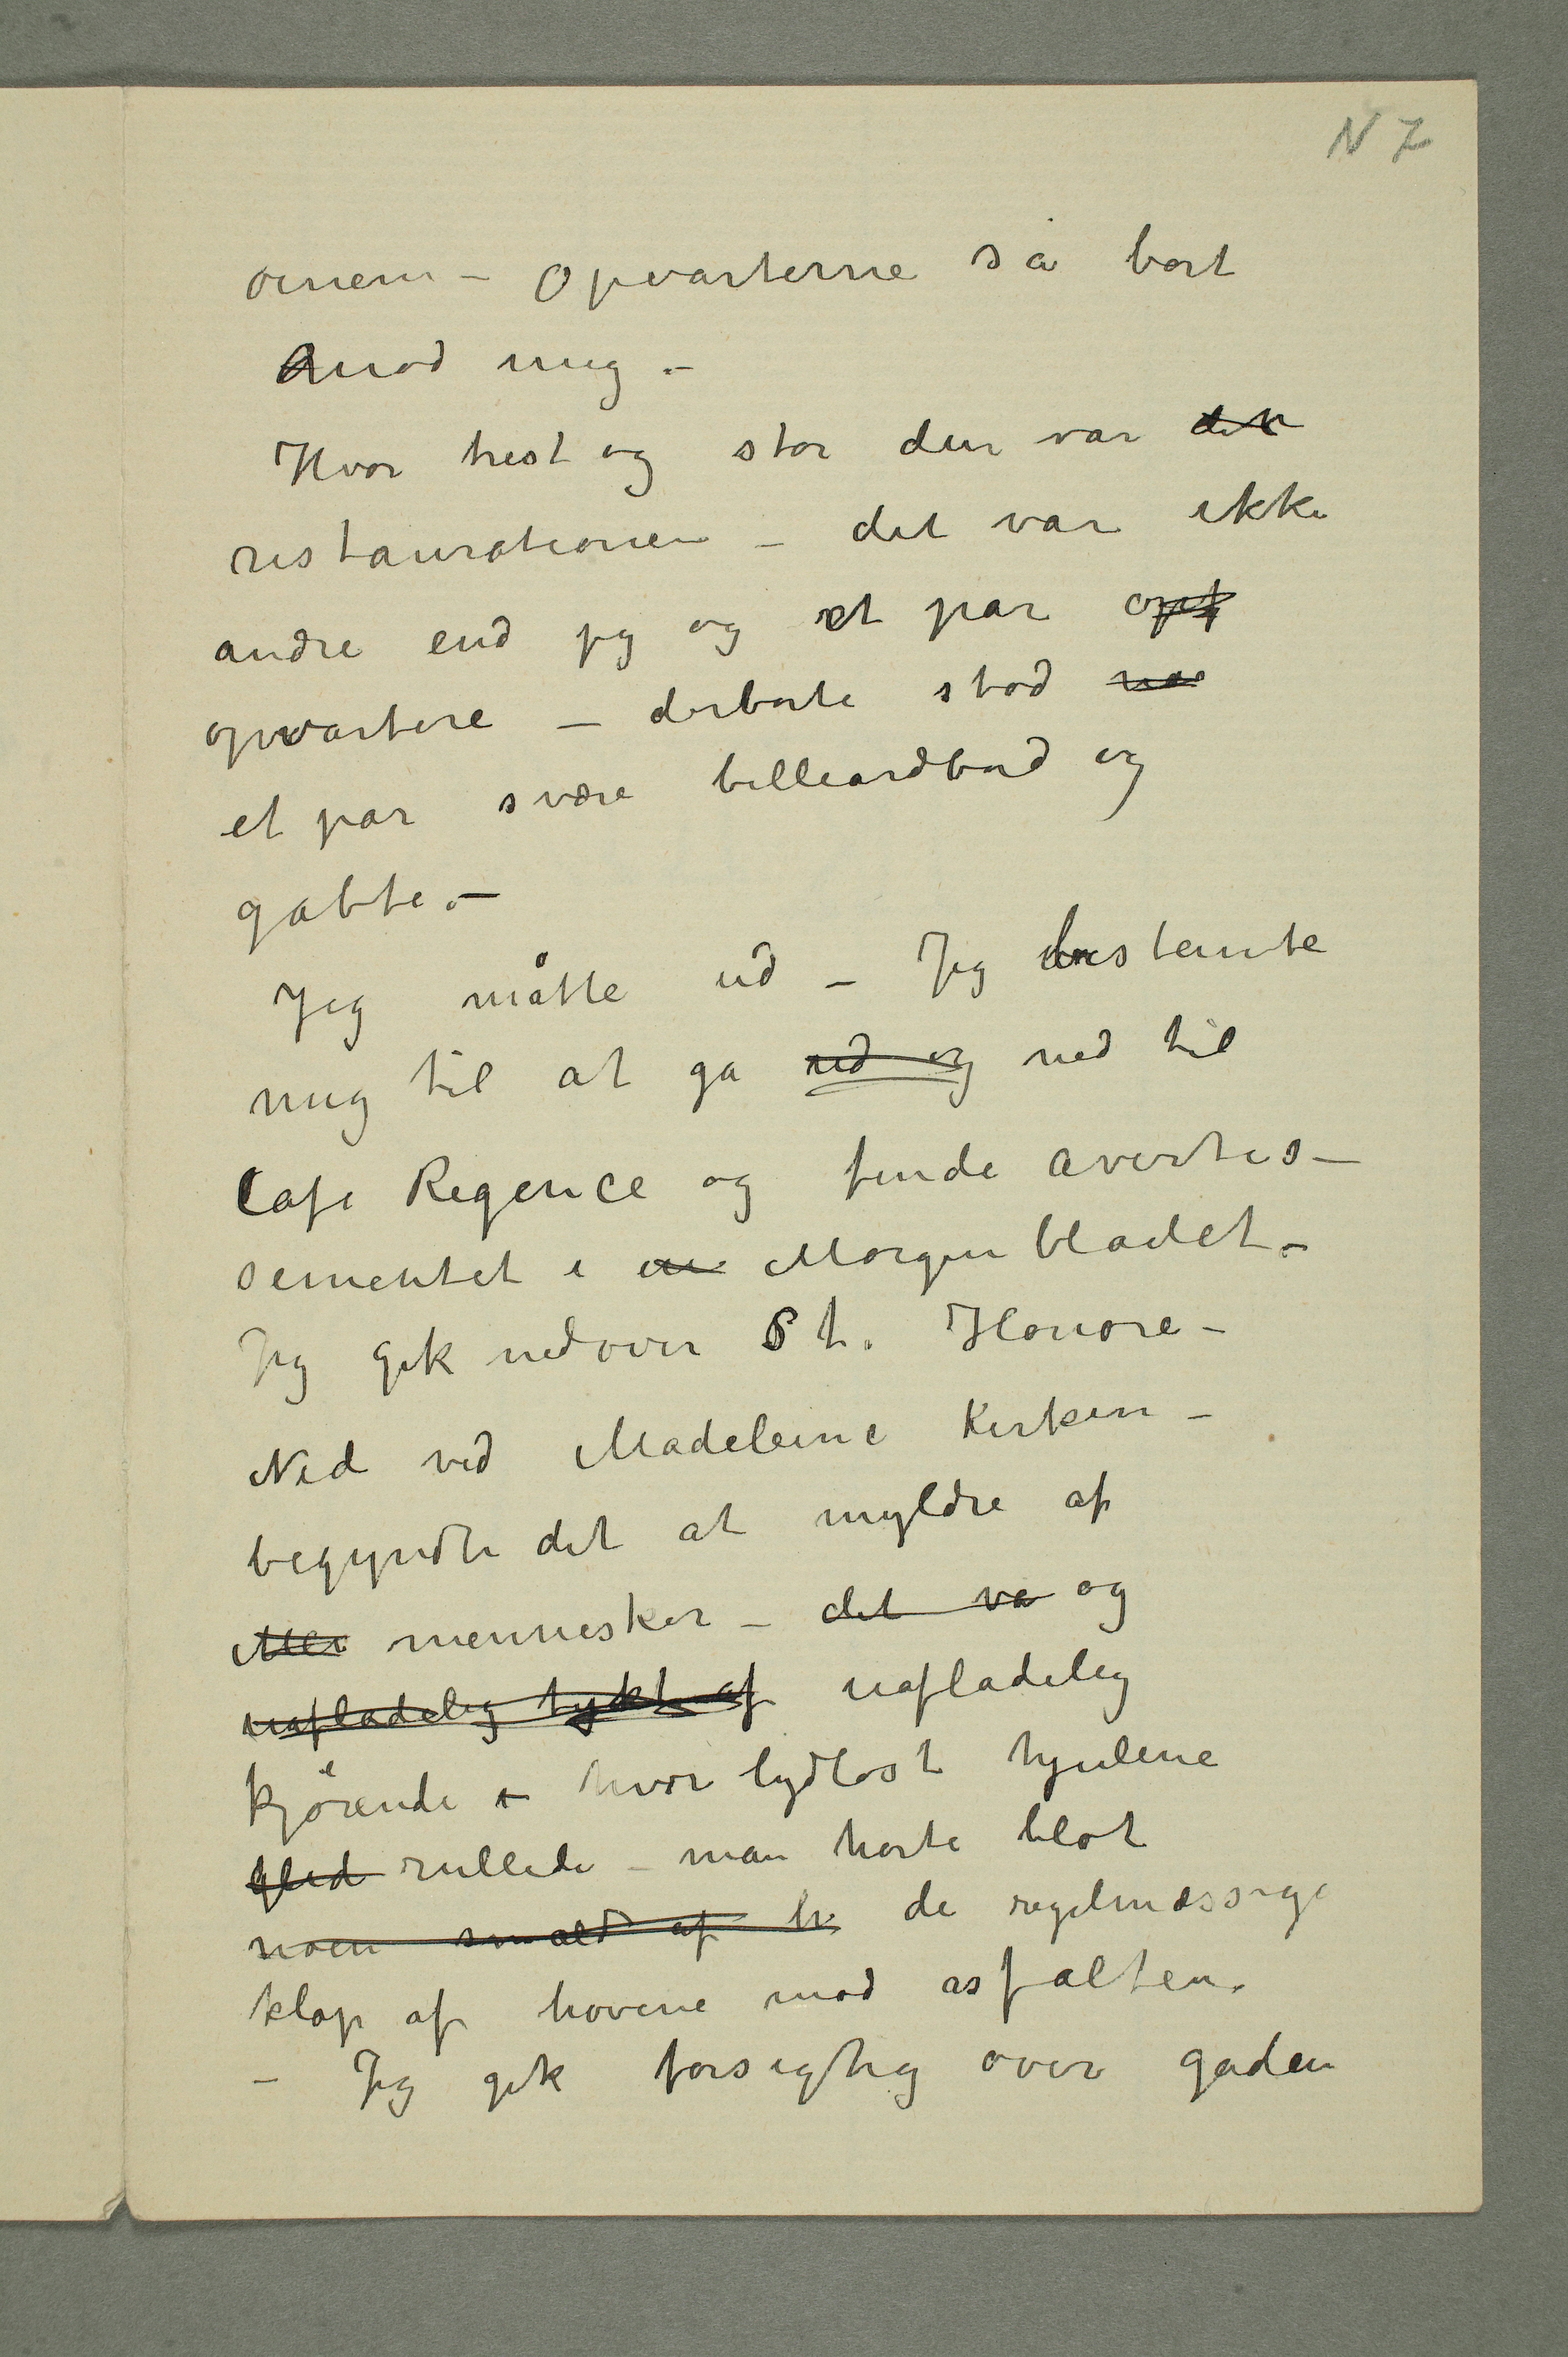 N 7
øinene – Opvarterne så bort
mod mig.–
Hvor trist og stor den var den
restaurationen – det var ikke
andre end jeg og et par opf
opvartere – derborte stod
et par svære billeardbord og
gabte.–
Jeg måtte ud – Jeg bestemte
mig til at ga ud og ned til
Cafe Regence og finde avertis–
sementet i en Morgenbladet –
Jeg gik nedover St. Honore –
Ned ved Madeleine Kirken –
begyndte det at myldre af
Men mennesker – det va og
uafladelig tykt af uafladelig
kjørende – hvor lydløst hjulene
gled rullede – man hørte blot
noen smæld af h de regelmæssige
klap af hovene mod asfalten.
– Jeg gik forsigtig over gaden